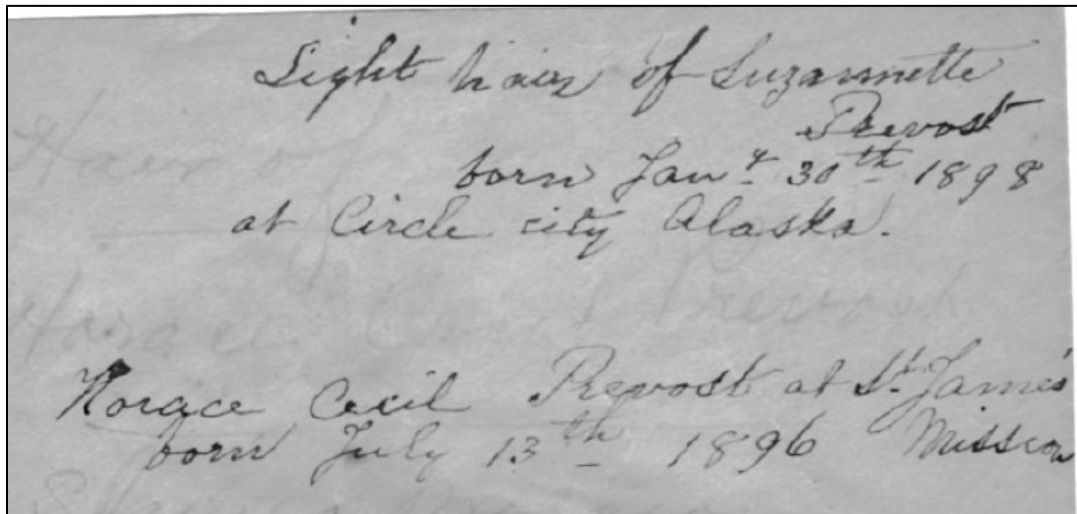 Light hair of Suzannette
Prevost
born Jany 30th 1898
at Circle city Alaska.
Hair of
Horace Prevost
Horace Cecil Prevost at St. James
born July 13th 1896 Mission